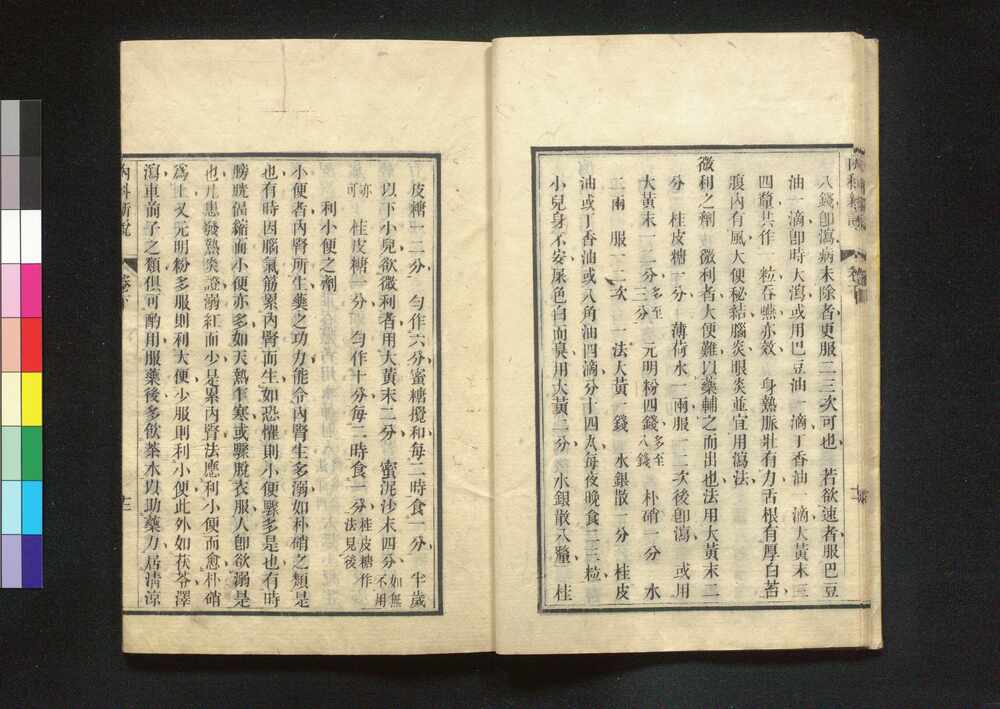 八錢卽瀉病未除者更服二三次可也　若欲速者服巴豆
油一滴卽時大瀉或用巴豆油一滴丁香油一滴大黃末三
四釐共作一粒吞嚥亦效　身熱脈壯有力舌根有厚白苔
腹內有風大便秘結腦炎眼炎並宜用瀉法
微利之劑　微利者大便難以藥輔之而出也法用大黃末二
分　桂皮糖十分　薄荷水一兩服一二次後卽瀉　或用
大黃末一二分多至三分　元明粉四錢多至八錢　朴硝一分　水
二兩　服一二次　一法大黃一錢　水銀散一分　桂皮
油或丁香油或八角油四滴分十四丸每夜晚食二三粒
小兒身不安屎色白而臭用大黃二分水銀散八釐　桂
皮糖一二分　勻作六分蜜糖攪和每二時食一分　半歲
以下小兒欲微利者用大黃末二分　蜜泥沙末四分如無不用
亦可　桂皮糖一分　勻作十分每二時食一分桂皮糖作法見後
利小便之劑
小便者內腎所生藥之功力能令內腎生多溺如朴硝之類是
也有時因腦氣筋累內腎而生如恐懼則小便驟多是也有時
膀胱偪縮而小便亦多如天熱乍寒或驟脫衣服人卽欲溺是
也凡患發熱炎證溺紅而少是累內腎法應利小便而愈朴硝
爲上又元明粉多服則利大便少服則利小便此外如茯苓澤
瀉車前子之類俱可酌用服藥後多飲茶水以助藥力居清涼
內科新說　卷下　十二